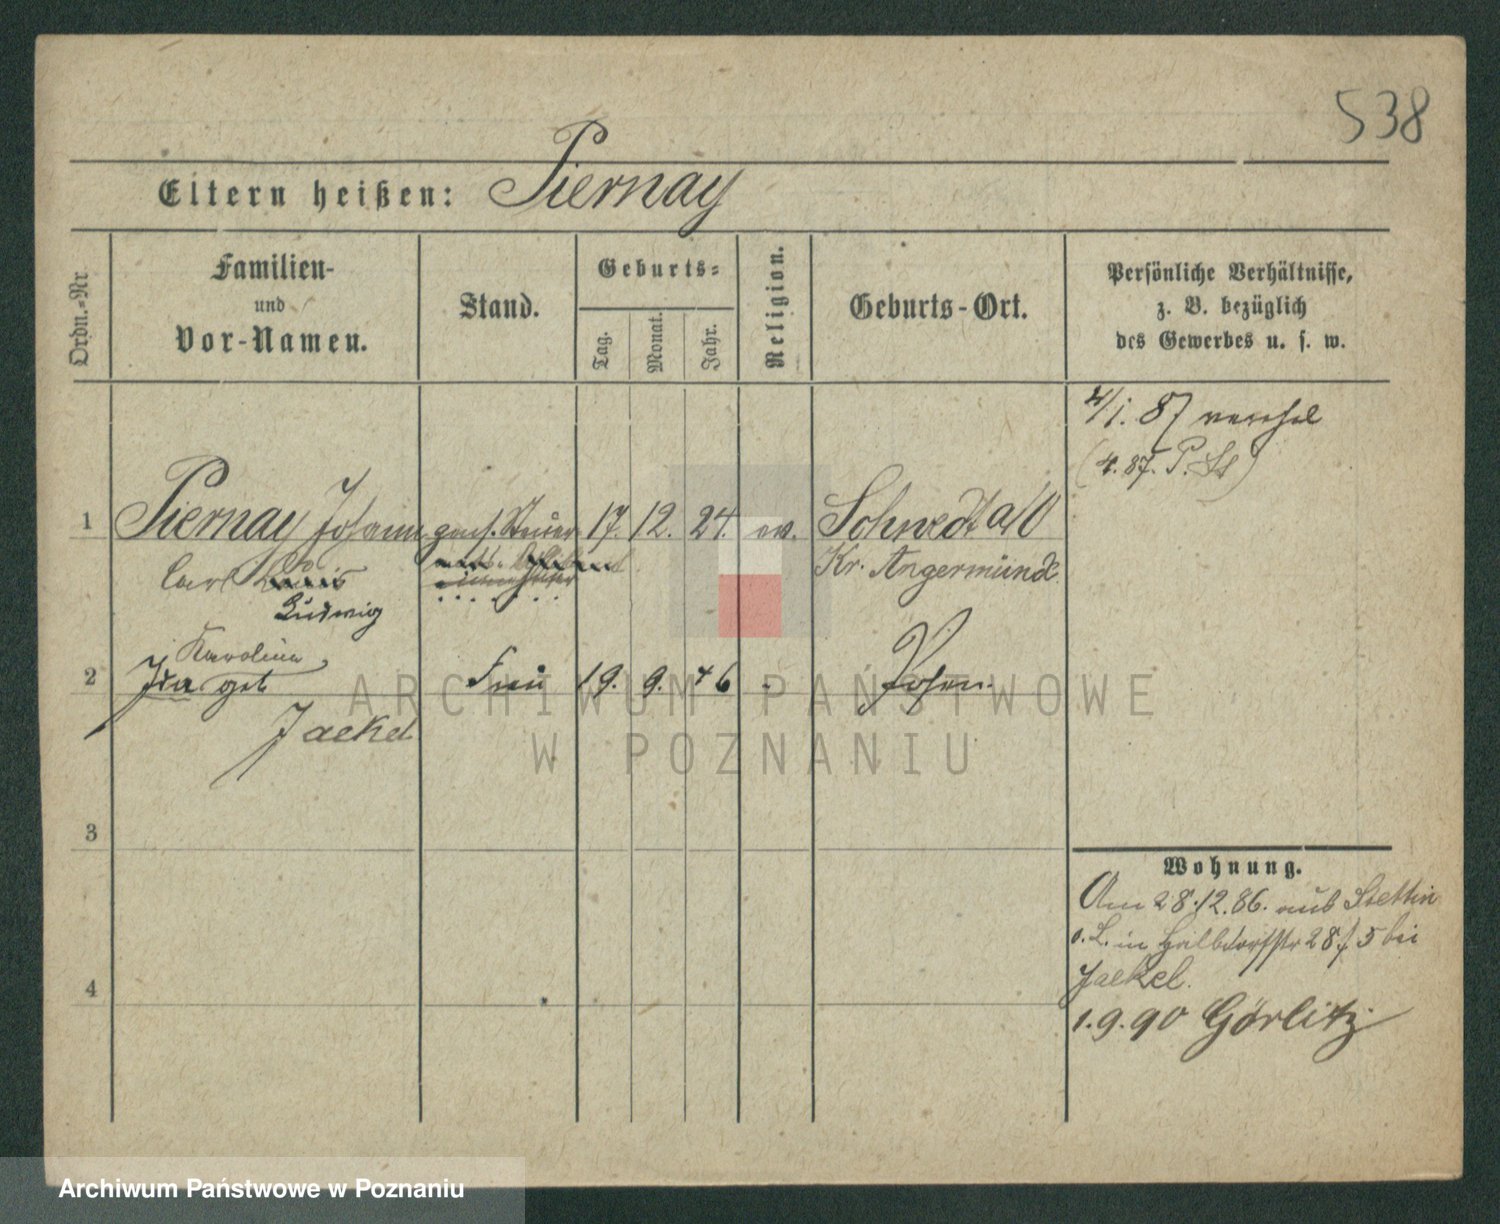 538
Eltern heißen: Piernay
Ordn.-Nr.
Familien-
und
Vor-Namen.
Stand.
Geburts-
Tag.
Monat.
Jahr.
Religion.
Geburts-Ort.
Persönliche Verhältnisse,
z. B. bezüglich
des Gewerbes u. s. w.
4/1. 87
(4. 87. P.
1 Piernay Johann pens. Steuer 17. 12. 24. ev. Schwedt a/O
Carl Louis
Kr. Angermünde
Ludwig
Karoline
2 Ida geb Frau 19. 9. 46 - Posen.
Jaekel
3
4
Wohnung.
Am 28.12.86. aus Stettin
in Halbdorfstr 28/5 bei
Jaekel.
1.9.90 Görlitz
ARCHIWUM PAŃSTWOWE
W POZNANIU
Archiwum Państwowe w Poznaniu